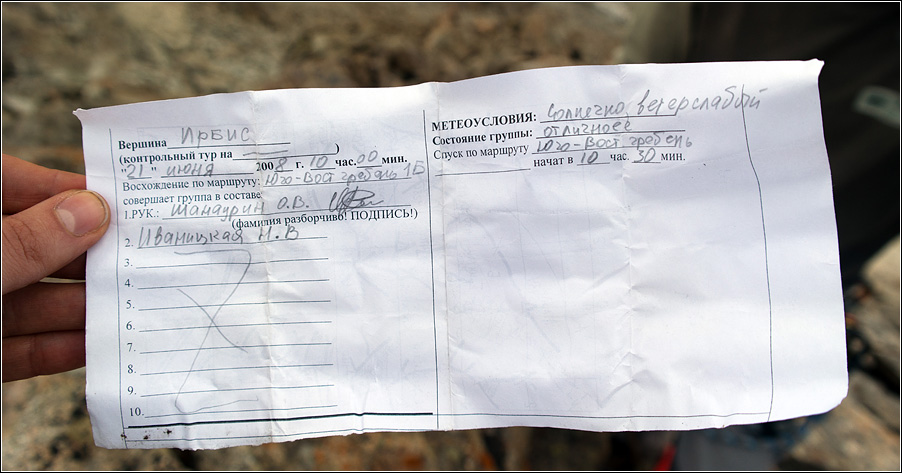 Вершина Ирбис
(контрольный тур на )
"21" июня 2008 г. 10 час. 00 мин.
Восхождение по маршруту: Юго-Вост гребень 1Б
совершает группа в составе:
1.РУК.: Шанаурин О.В.
(фамилия разборчиво! ПОДПИСЬ!)
2. Иваницкая Н.В
3.
4.
5.
6.
7.
8.
9.
10.
МЕТЕОУСЛОВИЯ: Солнечно ветерслабый
Состояние группы: отличное
Спуск по маршруту Юго-Вост гребень
начат в 10 час. 30 мин.